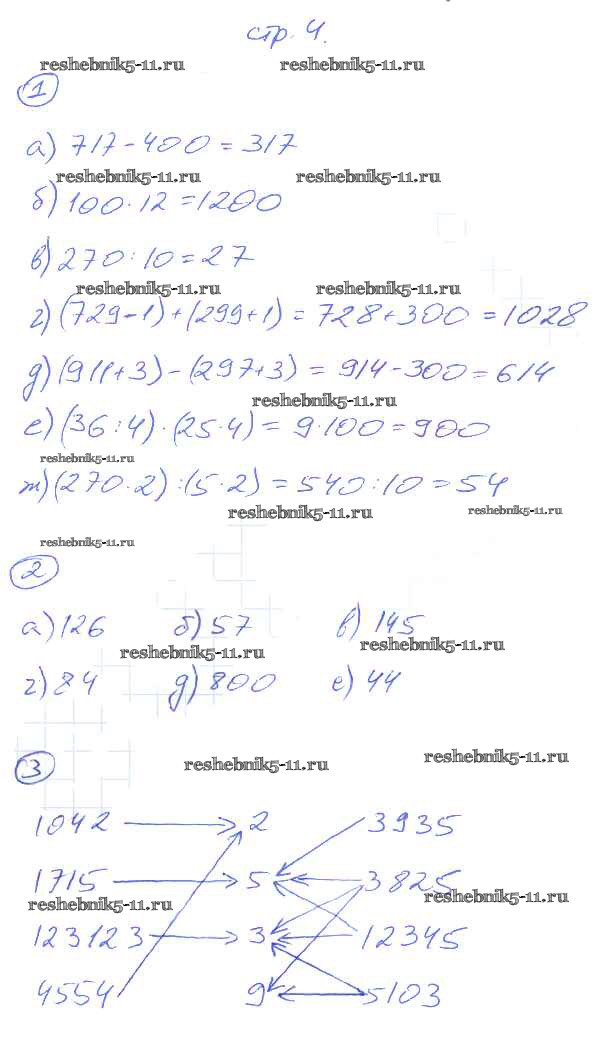 стр. 4.
reshebnik5-11.ru reshebnik5-11.ru
1
а) 717 - 400 = 317
reshebnik5-11.ru reshebnik5-11.ru
б) 100 · 12 = 1200
в) 270 : 10 = 27
reshebnik5-11.ru reshebnik5-11.ru
г) (729 - 1) + (299 + 1) = 728 + 300 = 1028
д) (911 + 3) - (297 + 3) = 914 - 300 = 614
reshebnik5-11.ru
е) (36 : 4) · (25 · 4) = 9 · 100 = 900
reshebnik5-11.ru
ж) (270 · 2) : (5 · 2) = 540 : 10 = 54
reshebnik5-11.ru reshebnik5-11.ru
reshebnik5-11.ru
2
а) 126 б) 57 в) 145
reshebnik5-11.ru reshebnik5-11.ru
г) 84 д) 800 е) 44
3
reshebnik5-11.ru reshebnik5-11.ru
1042 2 3935
1715 5 3825
reshebnik5-11.ru reshebnik5-11.ru
123123 3 12345
4554 9 5103